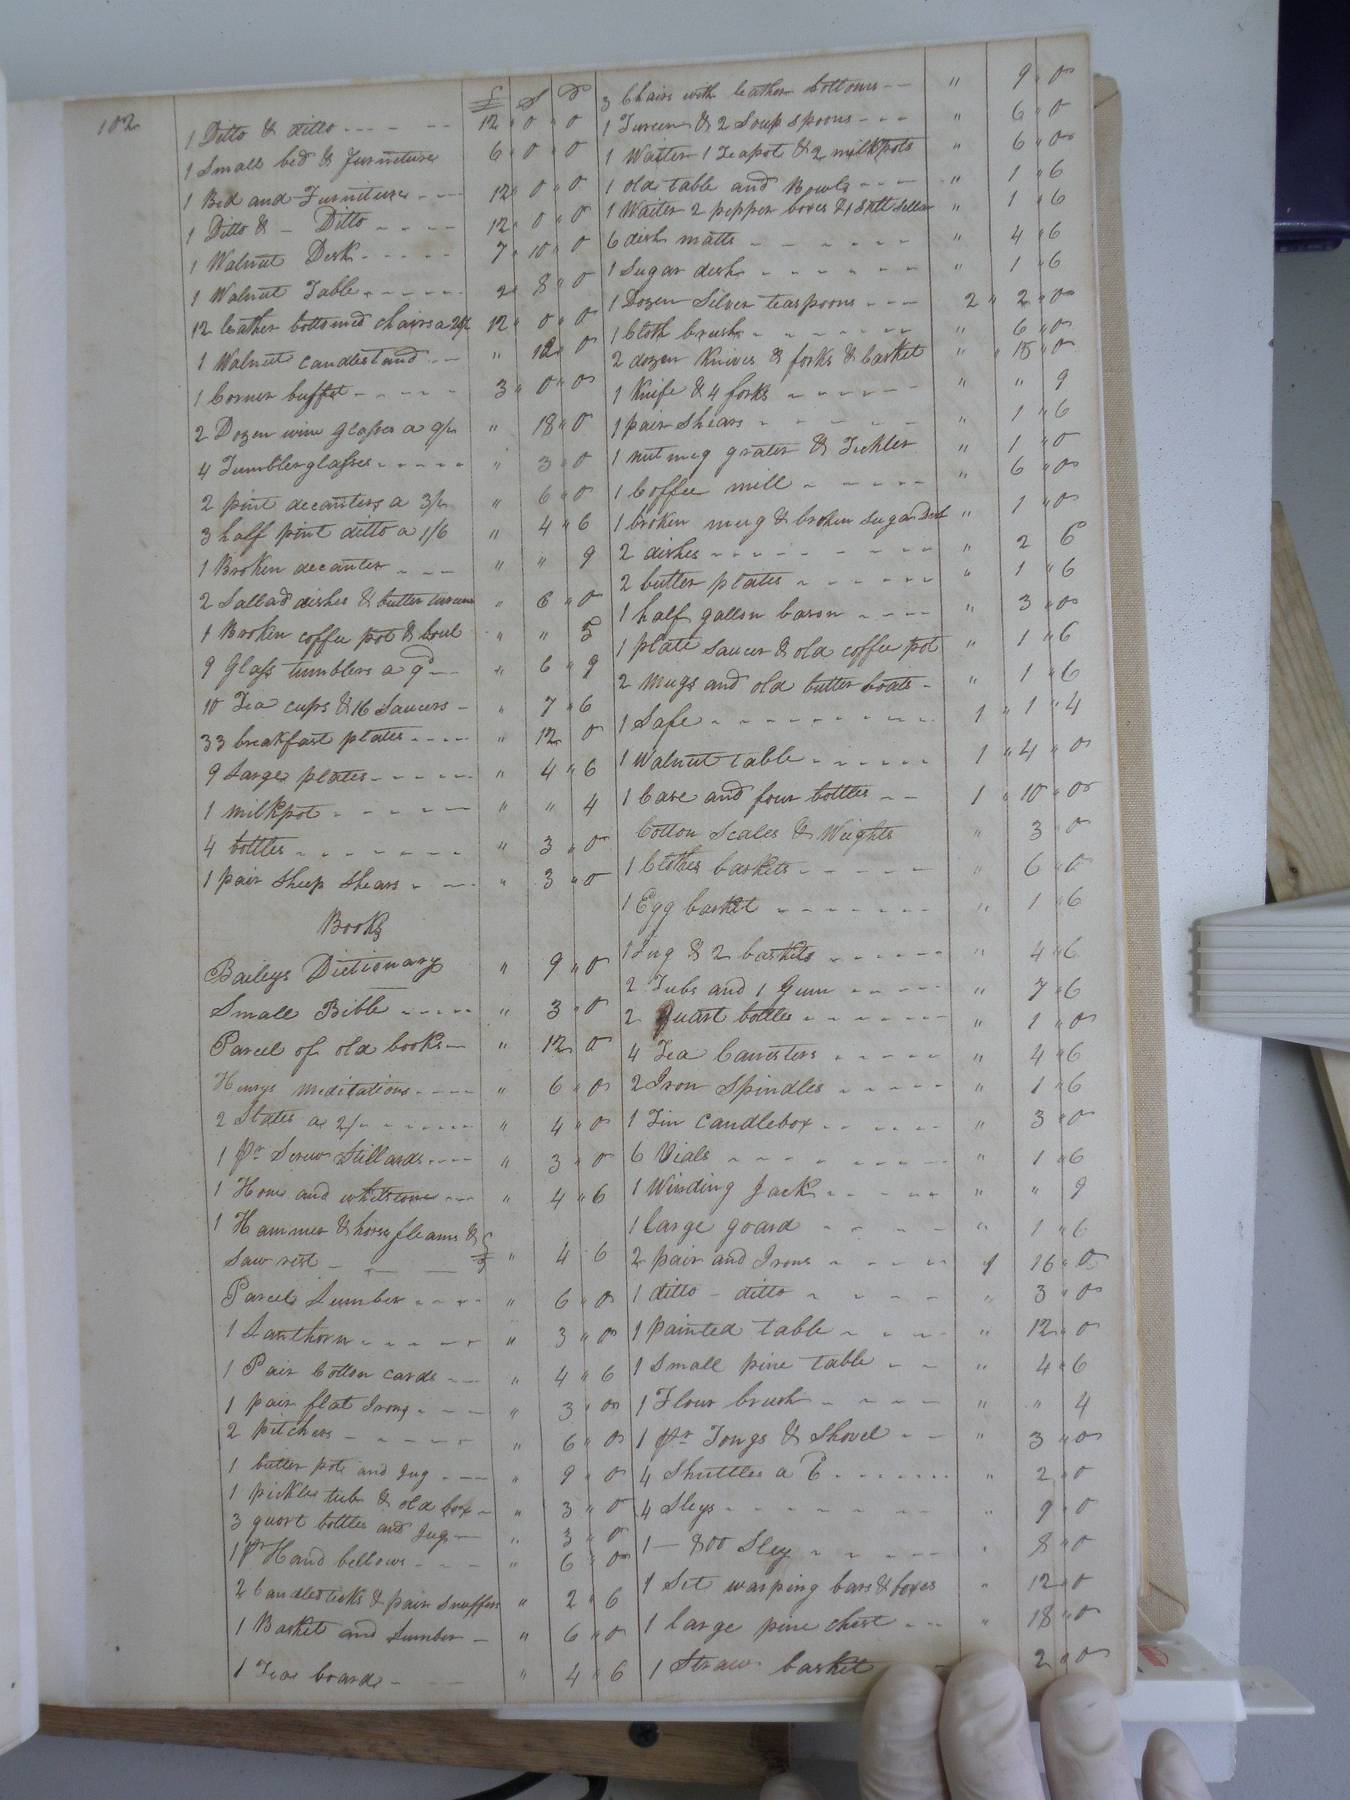 102
£ S D
1 Ditto & ditto 12 " 0 " 0
1 Small bed & furniture 6 " 0 " 0
1 Bed and Furniture 12 " 0 " 0
1 Ditto & Ditto 12 " 0 " 0
1 Walnut Desk 7 " 10 " 0
1 Walnut Table 2 " 8 " 0
12 leather bottomed chairs a 20/ 12 " 0 " 0
1 Walnut candlestand " 12 " 0
1 Corner buffet 3 " 0 " 0
2 Dozen wine glasses a 9/ " 18 " 0
4 Tumbler glasses " 3 " 0
2 pint decanters a 3/ " 6 " 0
3 half pint ditto a 1/6 " 4 " 6
1 Broken decanter " " 9
2 Sallad dishes & butter tureen " 6 " 0
1 Brokin coffee pot & boul " " 5
9 Glass tumblers a 9d " 6 " 9
10 Tea cups & 16 Saucers " 7 " 6
33 breakfast plates " 12 " 0
9 Large plates " 4 " 6
1 milkpot " " 4
4 bottles " 3 " 0
1 pair Sheep Shears " 3 " 0
Books
Baileys Dictionary " 9 " 0
Small Bible " 3 " 0
Parcel of old books " 12 " 0
Henrys meditations " 6 " 0
2 Slates a 2/ " 4 " 0
1 pr Screw Stillards " 3 " 0
1 Hone and whitstone " 4 " 6
1 Hammer & horse fleams &
Saw rest " 4 " 6
Parcels Lumber " 6 " 0
1 Lanthorn " 3 " 0
1 Pair Cotton cards " 4 " 6
1 pair flat Irons " 3 " 0
2 pitchers " 6 " 0
1 butter pot and Jug " 9 " 0
1 pickles tub & old box " 3 " 0
3 quart bottles and Jug " 3 " 0
1 pr Hand bellows " 6 " 0
2 Candlesticks & pair Snuffers " 2 " 6
1 Basket and Lumber " 6 " 0
1 Tea board " 4 " 6
3 Chairs with leather bottoms " 9 " 0
1 Tureen & 2 Soup spoons " 6 " 0
1 Waiter 1 Teapot & 2 milkpots " 6 " 0
1 old table and Bowls " 1 " 6
1 Waiter 2 pepper boxes & 1 Salt Sellar " 1 " 6
6 dish matts " 4 " 6
1 Sugar dish " 1 " 6
1 Dozen Silver teaspoons 2 " 2 " 0
1 Cloth brush " 6 " 0
2 dozen Knives & forks & basket " 15 " 0
1 Knife & 4 forks " " 9
1 pair Shears " 1 " 6
1 nutmeg grater & Tickler " 1 " 0
1 Coffee mill " 6 " 0
1 broken mug & broken sugar dish " 1 " 0
2 dishes " 2 6
2 butter plates " 1 " 6
1 half gallon bason " 3 " 0
1 plate saucer & old coffee pot " 1 " 6
2 Mugs and old butter boats " 1 " 6
1 Safe 1 " 1 " 4
1 Walnut table 1 " 4 " 0
1 Case and four bottles 1 " 10 " 0
Cotton Scales & Weights " 3 " 0
1 Clothes baskets " 6 " 0
1 Egg basket " 1 " 6
1 Jug & 2 baskets " 4 " 6
2 Tubs and 1 Gum " 7 " 6
2 Quart bottles " 1 " 0
4 Tea Canisters " 4 " 6
2 Iron Spindles " 1 " 6
1 Tin candlebox " 3 " 0
6 Vials " 1 " 6
1 Winding Jack " " 9
1 large goard " 1 " 6
2 pair and Irons 1 16 " 0
1 ditto - ditto " 3 " 0
1 painted table " 12 " 0
1 Small pine table " 4 " 6
1 Flour brush " " 4
1 pr Tongs & Shovel " 3 " 0
4 Shuttles a 6 " 2 " 0
4 Sleys " 9 " 0
1 — 800 Sley " 8 " 0
1 Set warping bars & boxes " 12 " 0
1 large pine chest " 18 " 0
1 Straw basket 2 " 0